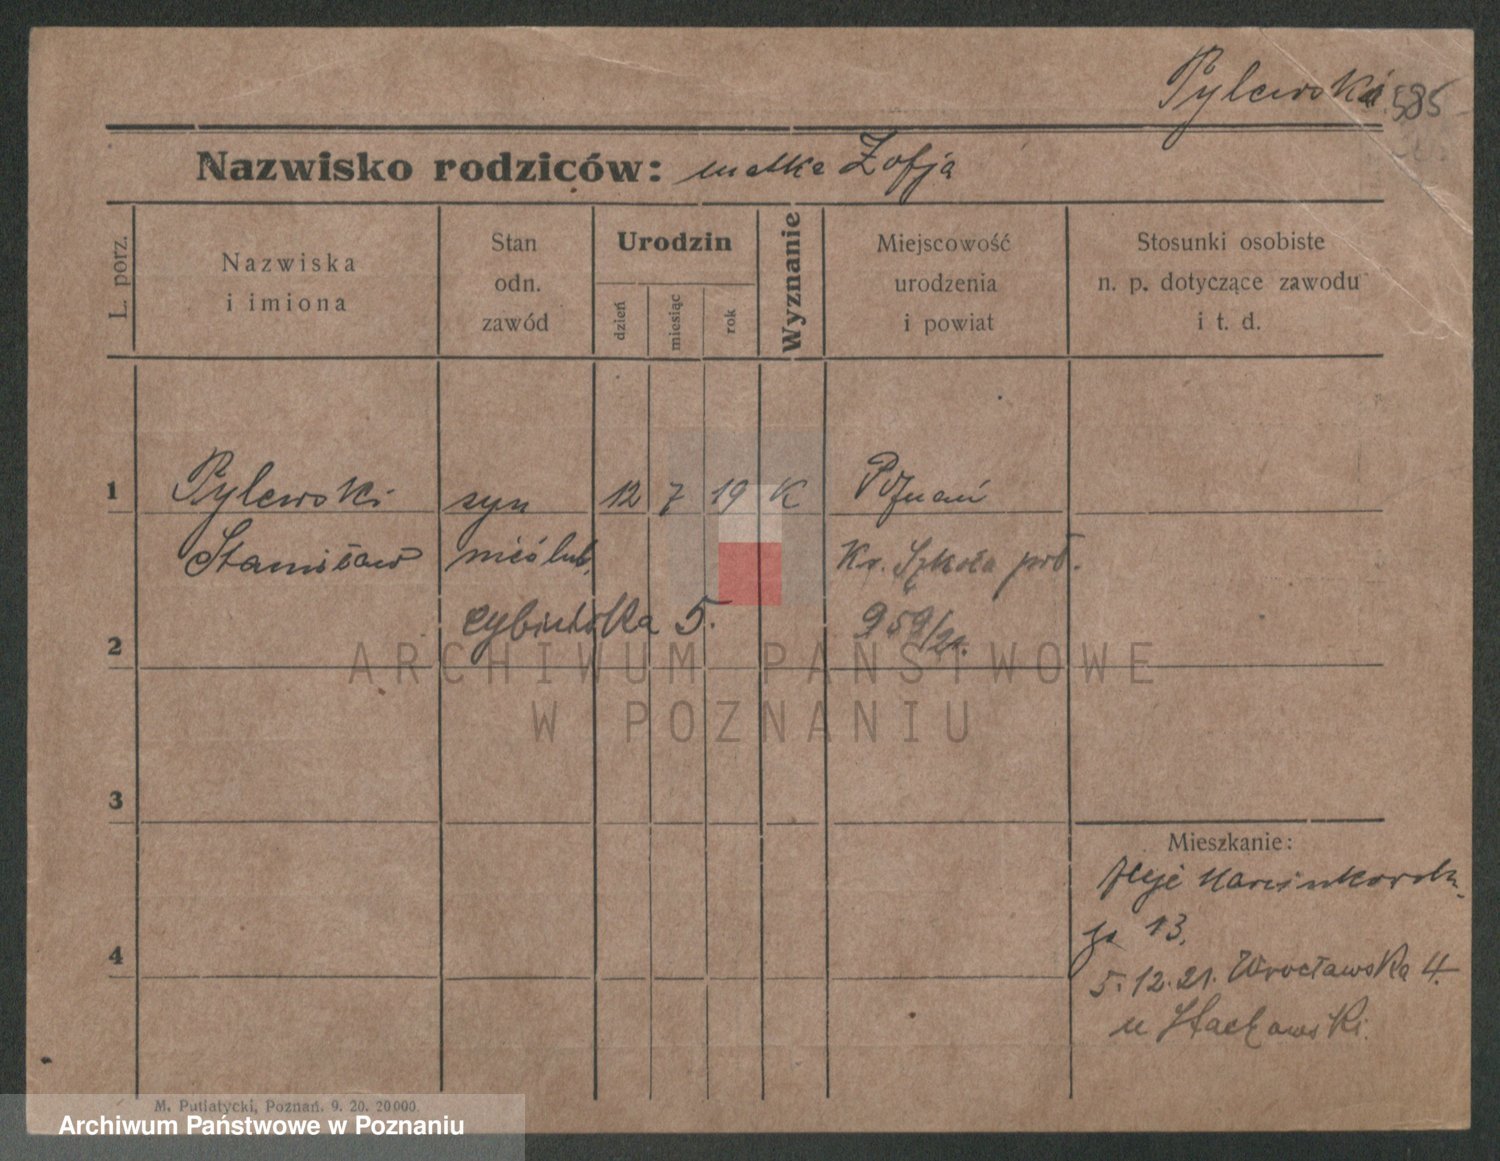 Pylewski 585
Nazwisko rodziców: matka Zofja
L. porz.
Nazwiska
i imiona
Stan
odn.
zawód
Urodzin
dzień
miesiąc
rok
Wyznanie
Miejscowość
urodzenia
i powiat
Stosunki osobiste
n. p. dotyczące zawodu
i t. d.
1 Pylewski syn 12 7 19 K Poznań
Stanisław nieślub. Kr. Szkoła
Cybińska 5. 959/21.
2
ARCHIWUM PAŃSTWOWE
W POZNANIU
3
Mieszkanie:
Aleje Marcinkowsk.
13.
4
5.12.21. Wrocławska 4.
u Stachowski.
M. Putiatycki, Poznań. 9. 20. 20000.
Archiwum Państwowe w Poznaniu